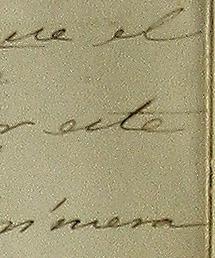 que el
este
rimera